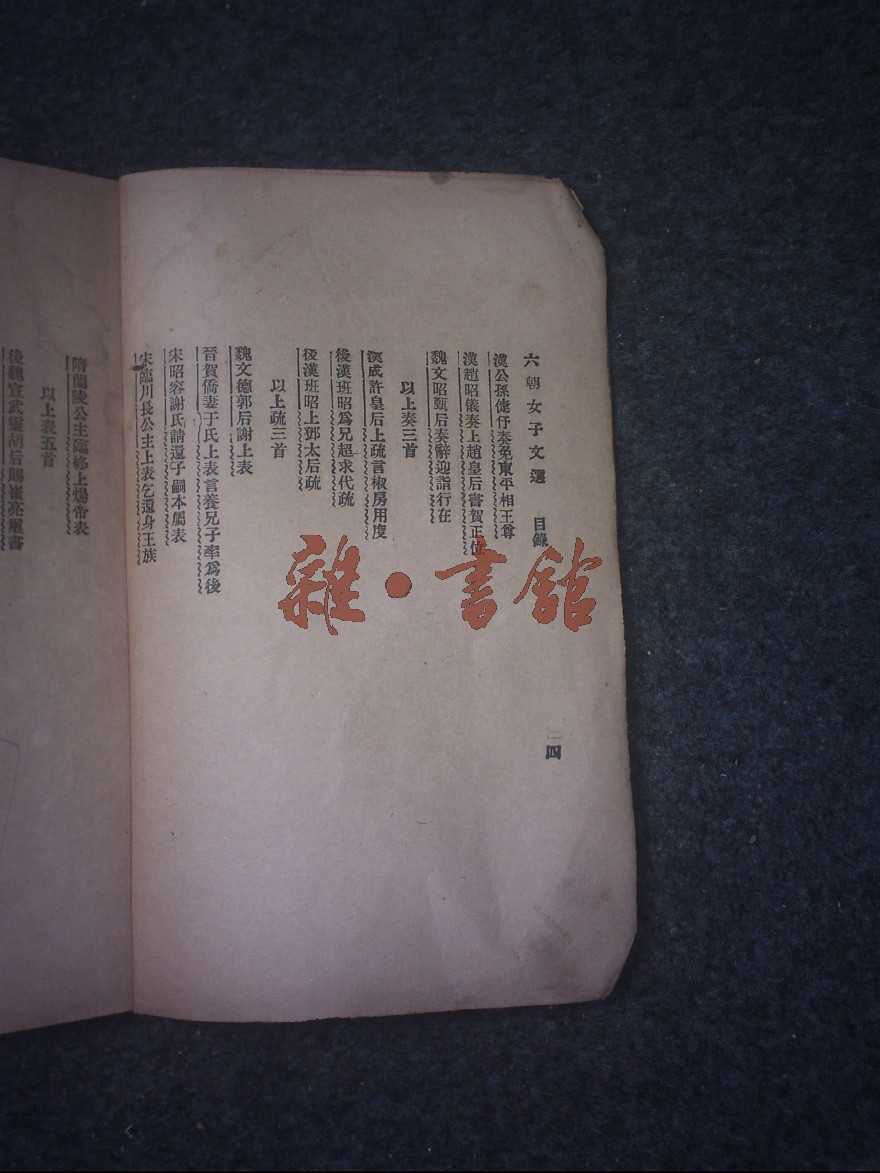 六朝女子文選 目錄 四
漢公孫倢伃奏免東平相王尊
漢趙昭儀奏上趙皇后書賀正位
魏文昭甄后奏辭迎詣行在
以上奏三首
漢成許皇后上疏言椒房用度
後漢班昭爲兄超求代疏
後漢班昭上鄧太后疏
以上疏三首
魏文德郭后謝上表
晉賀僑妻于氏上表言養兄子率爲後
宋昭容謝氏請還子嗣本屬表
宋臨川長公主上表乞還身王族
隋蘭陵公主臨終上煬帝表
以上表五首
後魏宣武靈胡后賜崔亮璽書
雜·書館